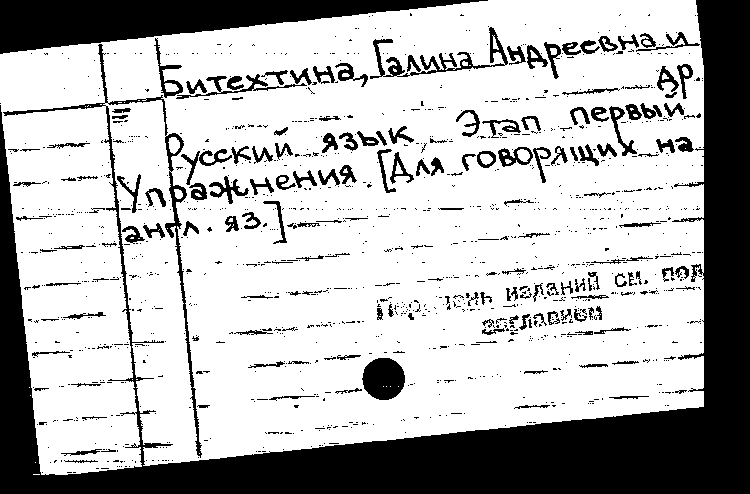 Битехтина, Галина Андреевна и
др.
Русский язык. Этап первый.
Упражнения. [Для говорящих на
англ. яз.]
Перечень изданий см. под
заглавием